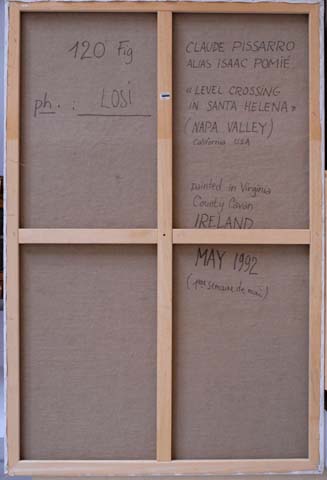 120 Fig
ph. : LOSI
CLAUDE PISSARRO
ALIAS ISAAC POMIÉ
"LEVEL CROSSING
IN SANTA HELENA"
(NAPA VALLEY)
California USA
painted in Virginia
County Cavan
IRELAND
MAY 1992
( semaine de mai)